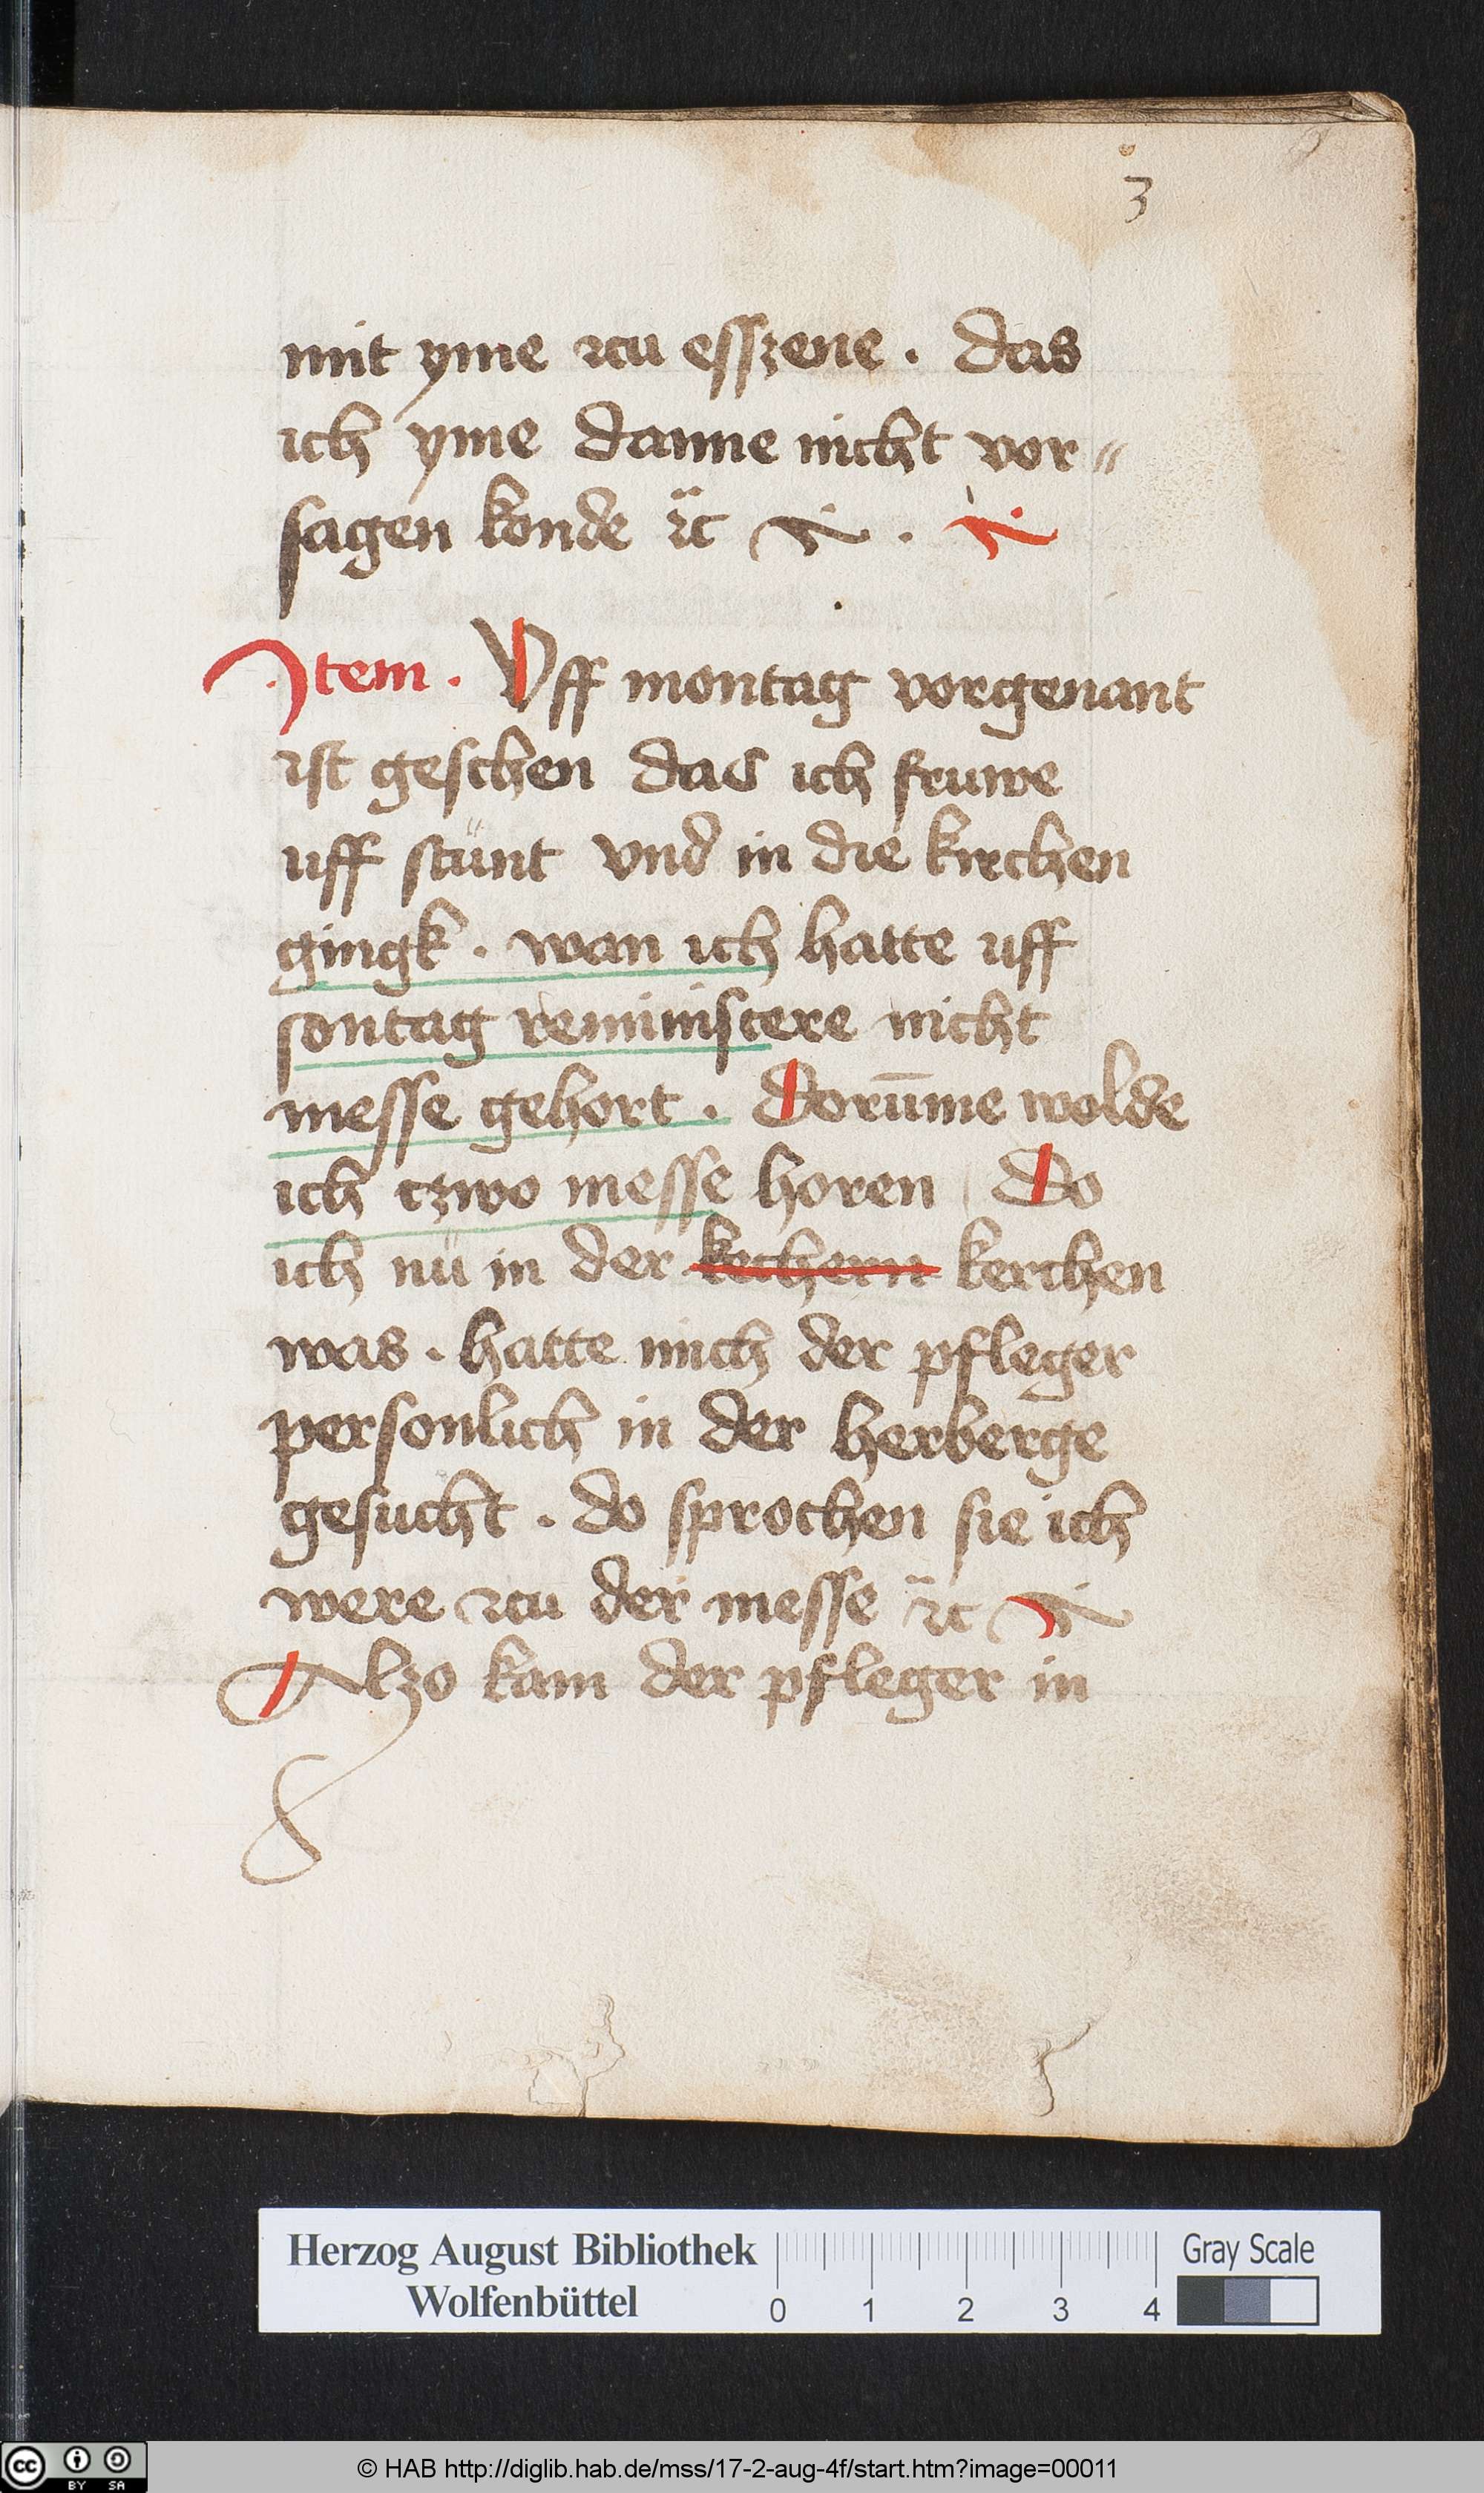 3
mit yme zcu esszene . das
ich yme danne nicht vor〃
sagen konde ꝛc .
Item . Vff montag vorgenant
ist geschen das ich fruwe
uff stünt vnd in die kirchen
gingk . wan ich hatte uff
sontag reministere nicht
messe gehort . Dorūme wolde
ich tzwo messe horen Do
ich nü in der kechern kerchen
was . hatte mich der pfleger
personlich in der herberge
gesucht . do sprochen sie ich
were zcu der messe ꝛc
Alzo kam der pfleger in
Herzog August Bibliothek
Wolfenbüttel
0 1 2 3 4
Gray Scale
cc BY SA
© HAB http://diglib.hab.de/mss/17-2-aug-4f/start.htm?image=00011